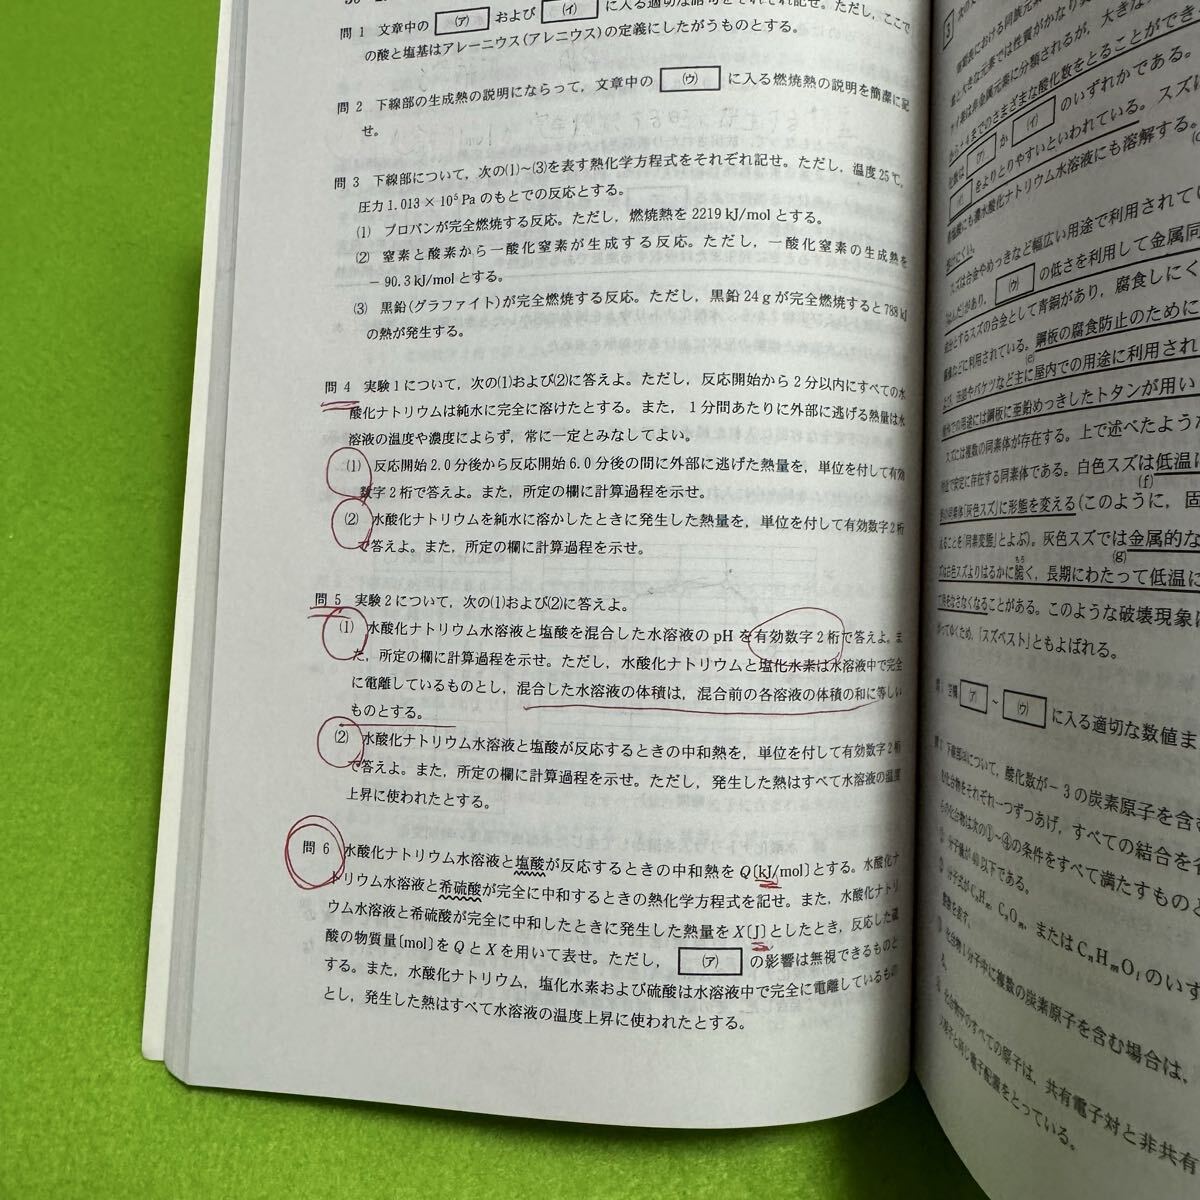 問 1 文章中の (ア) および (イ) に入る適切な語句をそれぞれ記せ。ただし,ここで
の酸と塩基はアレーニウス(アレニウス)の定義にしたがうものとする。
問 2 下線部の生成熱の説明にならって,文章中の (ウ) に入る燃焼熱の説明を簡潔に記
せ。
問 3 下線部について,次の(1)~(3)を表す熱化学方程式をそれぞれ記せ。ただし,温度25℃,
圧力1.013 × 10⁵ Pa のもとでの反応とする。
(1) プロパンが完全燃焼する反応。ただし,燃焼熱を 2219 kJ/mol とする。
(2) 窒素と酸素から一酸化窒素が生成する反応。ただし,一酸化窒素の生成熱を
− 90.3 kJ/mol とする。
(3) 黒鉛(グラファイト)が完全燃焼する反応。ただし,黒鉛 24 g が完全燃焼すると 788 kJ
の熱が発生する。
問 4 実験 1 について,次の(1)および(2)に答えよ。ただし,反応開始から 2 分以内にすべての水
酸化ナトリウムは純水に完全に溶けたとする。また,1 分間あたりに外部に逃げる熱量は水
溶液の温度や濃度によらず,常に一定とみなしてよい。
(1) 反応開始2.0分後から反応開始6.0分後の間に外部に逃げた熱量を,単位を付して有効
数字 2 桁で答えよ。また,所定の欄に計算過程を示せ。
(2) 水酸化ナトリウムを純水に溶かしたときに発生した熱量を,単位を付して有効数字 2 桁
で答えよ。また,所定の欄に計算過程を示せ。
問 5 実験 2 について,次の(1)および(2)に答えよ。
(1) 水酸化ナトリウム水溶液と塩酸を混合した水溶液の pH を有効数字 2 桁で答えよ。ま
た,所定の欄に計算過程を示せ。ただし,水酸化ナトリウムと塩化水素は水溶液中で完全
に電離しているものとし,混合した水溶液の体積は,混合前の各溶液の体積の和に等しい
ものとする。
(2) 水酸化ナトリウム水溶液と塩酸が反応するときの中和熱を,単位を付して有効数字 2 桁
で答えよ。また,所定の欄に計算過程を示せ。ただし,発生した熱はすべて水溶液の温度
上昇に使われたとする。
問 6 水酸化ナトリウム水溶液と塩酸が反応するときの中和熱を Q〔kJ/mol〕とする。水酸化ナ
トリウム水溶液と希硫酸が完全に中和するときの熱化学方程式を記せ。また,水酸化ナトリ
ウム水溶液と希硫酸が完全に中和したときに発生した熱量を X〔J〕としたとき,反応した硫
酸の物質量〔mol〕を Q と X を用いて表せ。ただし, (ア) の影響は無視できるものと
する。また,水酸化ナトリウム,塩化水素および硫酸は水溶液中で完全に電離しているもの
とし,発生した熱はすべて水溶液の温度上昇に使われたとする。
3
(ア) か (イ) のいずれかである。
をよりとりやすいといわれている。スズは
にも濃水酸化ナトリウム水溶液にも溶解する。
スズは合金やめっきなど幅広い用途で利用されて
があり, (ウ) の低さを利用して金属同
とするスズの合金として青銅があり,腐食しにく
などに利用されている。鋼板の腐食防止のために
(e)
缶詰やバケツなど主に屋内での用途に利用され
での用途には鋼板に亜鉛めっきしたトタンが用い
スズには複数の同素体が存在する。上で述べたような
で安定に存在する同素体である。白色スズは低温に
(f)
の同素体「灰色スズ」に形態を変える(このように,固
ることを「同素変態」とよぶ)。灰色スズでは金属的な
(g)
は白色スズよりはるかに脆く,長期にわたって低温に
で熱をなさなくなることがある。このような破壊現象は
がってゆくため,「スズペスト」ともよばれる。
(ア) ~ (ウ) に入る適切な数値ま
について,酸化数が− 3 の炭素原子を含む
化合物をそれぞれ一つずつあげ,すべての結合を
の化合物は次の①~④の条件をすべて満たすものと
分子量が 40 以下である。
分子式が CₙHₘ, CₙOₘ, または CₙHₘOₗ のいず
化合物 1 分子中に複数の炭素原子を含む場合は,
化合物中のすべての原子は,共有電子対と非共有
と同じ電子配置をとっている。